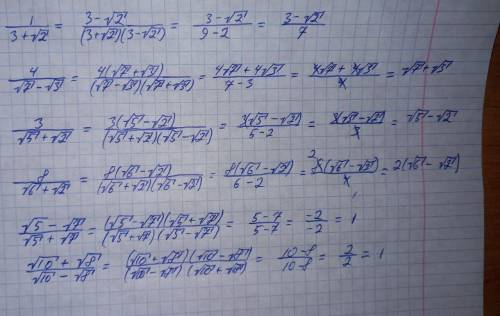 1/(3+√2) = (3-√2)/((3+√2)(3-√2)) = (3-√2)/(9-2) = (3-√2)/7
4/(√7-√3) = 4(√7+√3)/((√7-√3)(√7+√3)) = (4√7+4√3)/(7-3) = (4√7+4√3)/4 = √7+√3
3/(√5+√2) = 3(√5-√2)/((√5+√2)(√5-√2)) = 3(√5-√2)/(5-2) = 3(√5-√2)/3 = √5-√2
8/(√6+√2) = 8(√6-√2)/((√6+√2)(√6-√2)) = 8(√6-√2)/(6-2) = ²8(√6-√2)/4 = 2(√6-√2)
(√5-√7)/(√5+√7) = (√5-√7)(√5+√7)/((√5+√7)(√5-√7)) = (5-7)/(5-7) = -2/-2 = 1
(√10+√8)/(√10-√8) = (√10+√8)(√10-√8)/((√10-√8)(√10+√8)) = (10-8)/(10-8) = 2/2 = 1